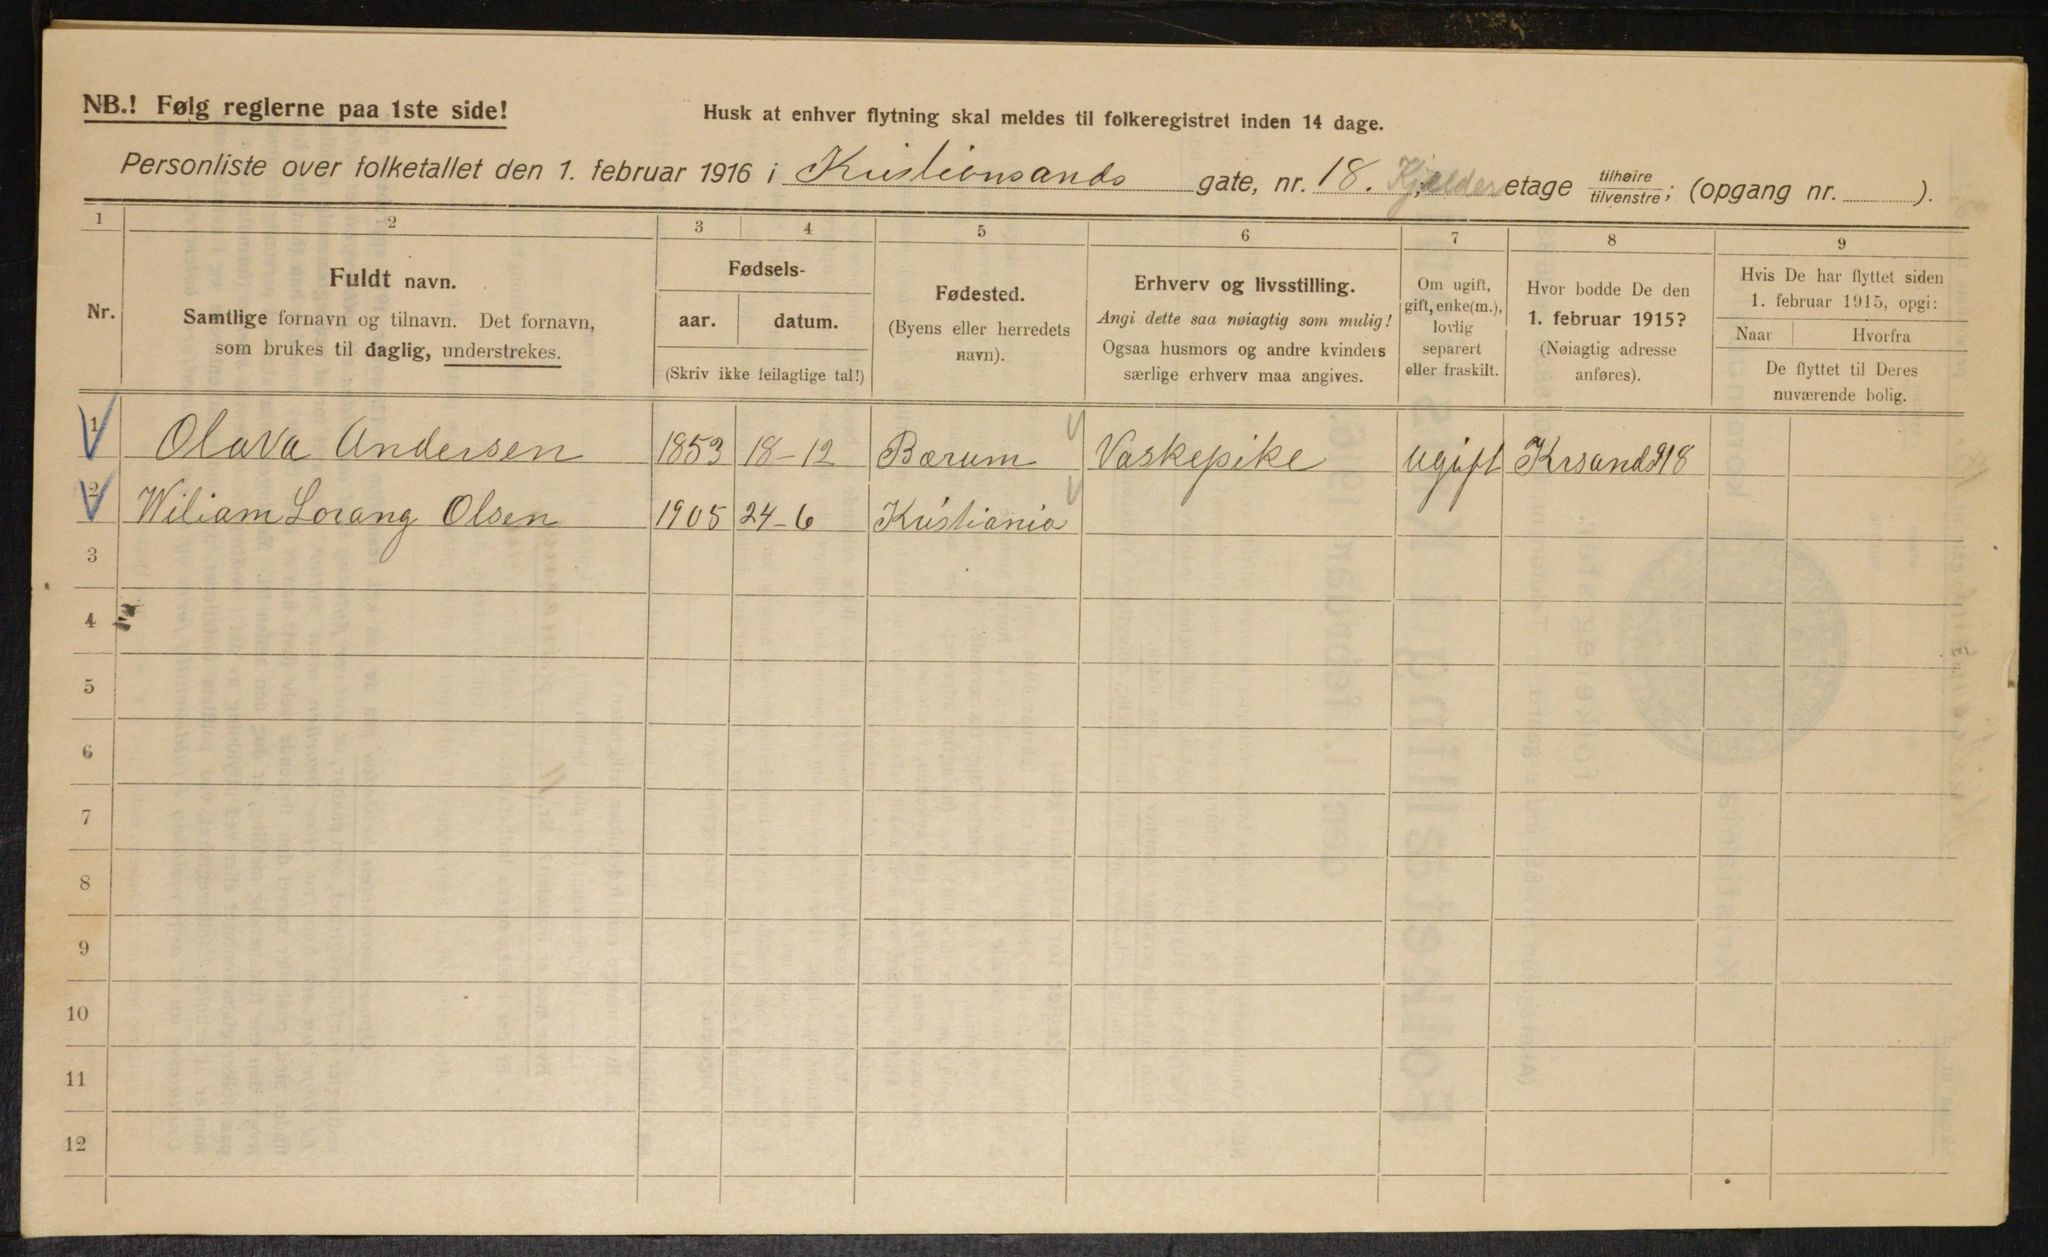 NB.! Følg reglerne paa 1ste side!
Husk at enhver flytning skal meldes til folkeregistret inden 14 dage.
Personliste over folketallet den 1. februar 1916 i Kristiansands gate, nr. 18. Kjelder etage tilhøire / tilvenstre; (opgang nr. ).
1 2 3 4 5 6 7 8 9
Nr.
Fuldt navn.
Samtlige fornavn og tilnavn. Det fornavn,
som brukes til daglig, understrekes.
Fødsels-
aar. datum.
(Skriv ikke feilagtige tal!)
Fødested.
(Byens eller herredets
navn).
Erhverv og livsstilling.
Angi dette saa nøiagtig som mulig!
Ogsaa husmors og andre kvinders
særlige erhverv maa angives.
Om ugift,
gift, enke(m.),
lovlig
separert
eller fraskilt.
Hvor bodde De den
1. februar 1915?
(Nøiagtig adresse
anføres).
Hvis De har flyttet siden
1. februar 1915, opgi:
Naar Hvorfra
De flyttet til Deres
nuværende bolig.
1 Olava Andersen 1853 18-12 Bærum Vaskepike ugift Krsandsg 18
2 Wiliam Lorang Olsen 1905 24-6 Kristiania
3
4
5
6
7
8
9
10
11
12